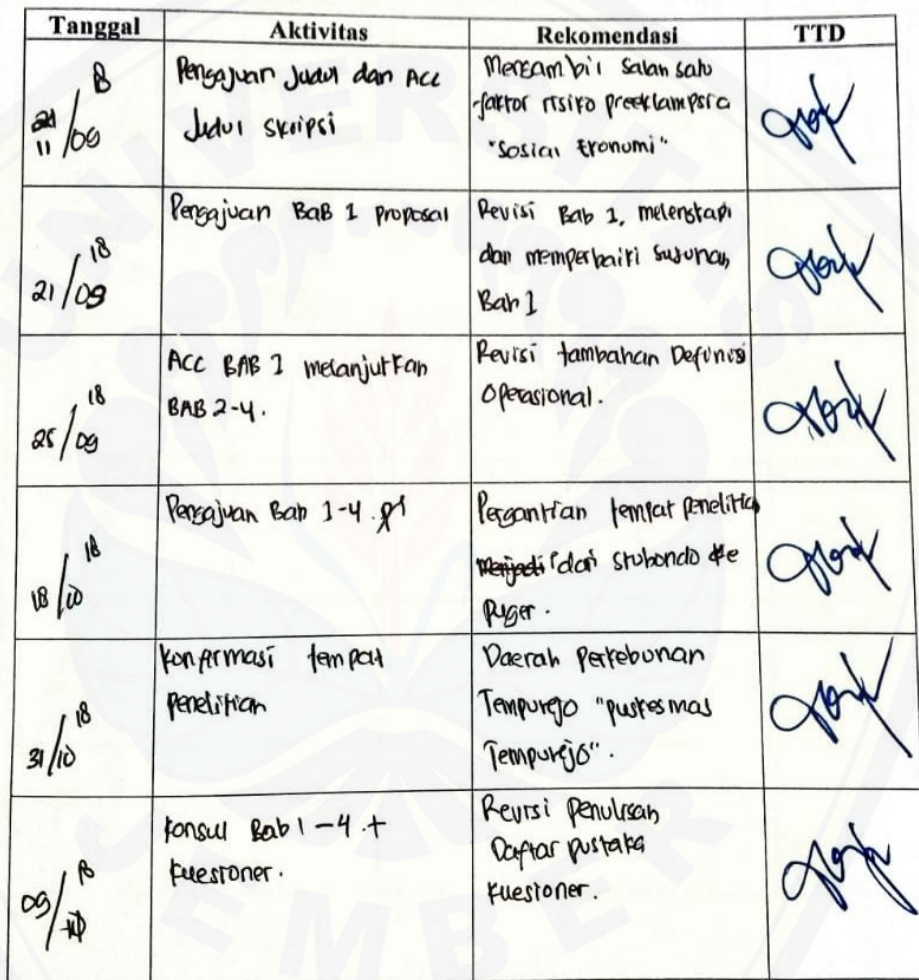 Tanggal Aktivitas Rekomendasi TTD
11/09 18
Pengajuan Judul dan Acc
Judul Skripsi
Mengambil Salah satu
faktor risiko preeklampsia
"Sosial Ekonomi"
21/09 18
Pengajuan BaB 1 proposal
Revisi Bab 1, melengkapi
dan memperbaiki susunan
Bab 1
25/09 18
ACC BAB 1 melanjutkan
BAB 2-4.
Revisi tambahan Definisi
Operasional.
18/10 18
Pengajuan Bab 1-4.
Pergantian tempat penelitia
menjadi dari Stubondo ke
Puger.
31/10 18
Konfirmasi tempat
Penelitian
Daerah Perkebunan
Tempurejo "puskesmas
Tempurejo".
09/ 18
Konsul Bab 1-4 +
Kuesioner.
Revisi Penulisan
Daftar pustaka
Kuesioner.
UNIVERSITAS
JEMBER